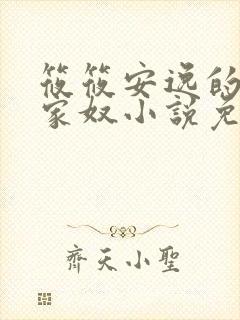 筱筱安逸的
家奴小說免
齊天小聖